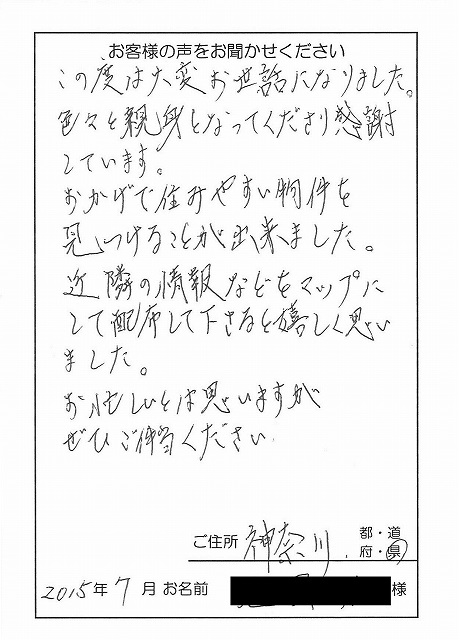 お客様の声をお聞かせください
この度は大変お世話になりました。
色々と親身となってくださり感謝
しています。
おかげで住みやすい物件を
見つけることが出来ました。
近隣の情報などをマップに
して配布して下さると嬉しく思い
ました。
お忙しいとは思いますが
ぜひご検当ください
ご住所 神奈川 都・道
府・県
2015年7月 お名前 様